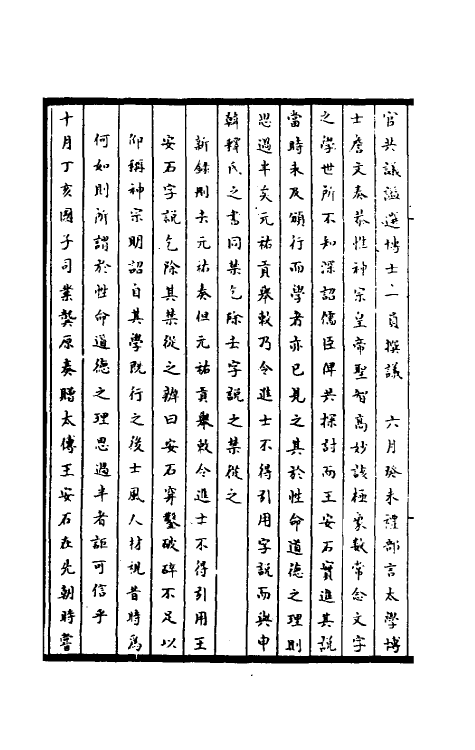 官共議謚選博士二員撰議　六月癸未禮部言太學博
士詹文奏恭惟神宗皇帝聖智高妙該極象數常念文字
之學世所不知深詔儒臣俾共探討而王安石實進其說
當時未及頒行而學者亦已見之其於性命道德之理則
思過半矣元祐貢舉敕乃令進士不得引用字說而與申
韓釋氏之書同禁乞除去字說之禁從之
新錄刪去元祐奏但元祐貢舉敕令進士不得引用王
安石字說乞除其禁從之辨曰安石穿鑿破碎不足以
仰稱神宗明詔自其學既行之後士風人材視昔時爲
何如則所謂於性命道德之理思過半者詎可信乎
十月丁亥國子司業龔原奏贈太傅王安石在先朝時嘗